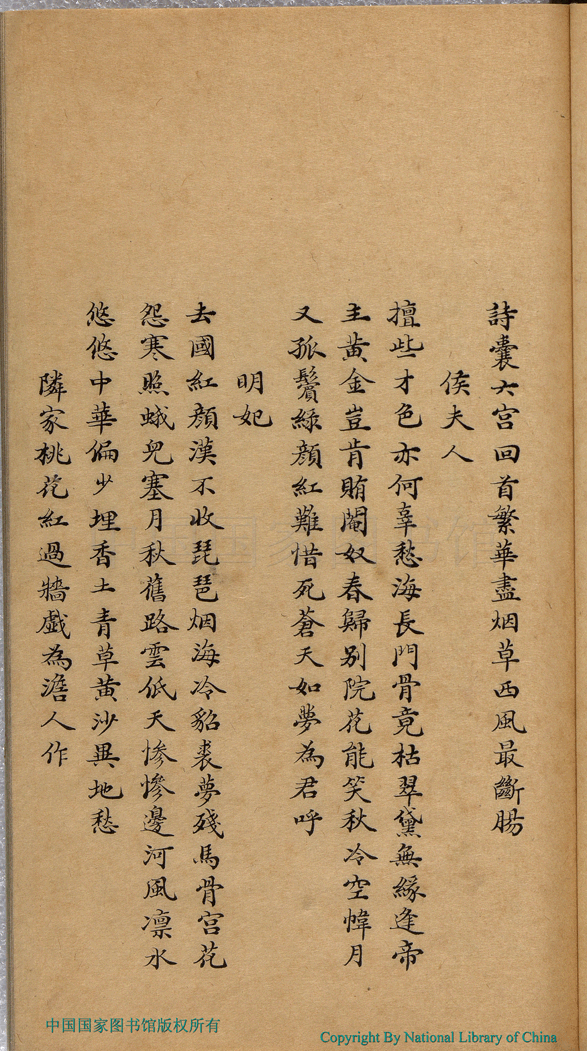 詩囊六宮回首繁華盡烟草西風最斷腸
侯夫人
擅些才色亦何辜愁海長門骨竟枯翠黛無緣逢帝
主黃金豈肯賄閹奴春歸別院花能笑秋冷空幃月
又孤鬢綠顏紅難惜死蒼天如夢為君呼
明妃
去國紅顏漢不收琵琶烟海冷貂裘夢殘馬骨宮花
怨寒照蛾兒塞月秋舊路雲低天慘慘邊河風凛水
悠悠中華偏少埋香土青草黃沙異地愁
隣家桃花紅過牆戲為澹人作
中国国家图书馆版权所有
Copyright By National Library of China